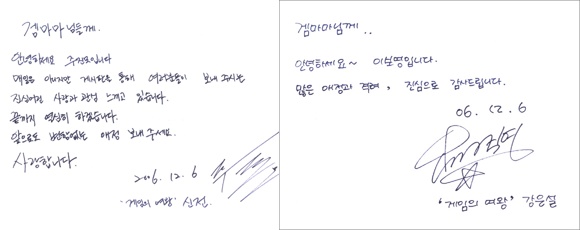 겜마마님들께.
안녕하세요 주진모입니다
매일은 아니지만 게시판을 통해 여러분들이 보내 주시는
진심어린 사랑과 관심 느끼고 있습니다.
끝까지 열심히 하겠습니다.
앞으로도 변함없는 애정 보내 주세요.
사랑합니다.
2006. 12. 6
'게임의 여왕' 신전.
겜마마님께..
안녕하세요~ 이보영입니다.
많은 애정과 격려, 진심으로 감사드립니다.
06. 12. 6
'게임의 여왕' 강은설